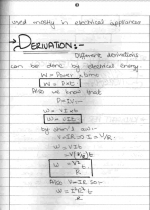 used mostly in electrical appliances
→ DERIVATION:-
Different derivations
can be done by electrical energy.
W = Power × time
W = P×t
Also we know that
P = IV
W = VIxt
W = VIt
by ohm's law:-
V=IR ⇒ I = V/R
W = VIt
= V(V/R)t
W = V²t
R
Also V=IR So:-
W = I²R²t
R